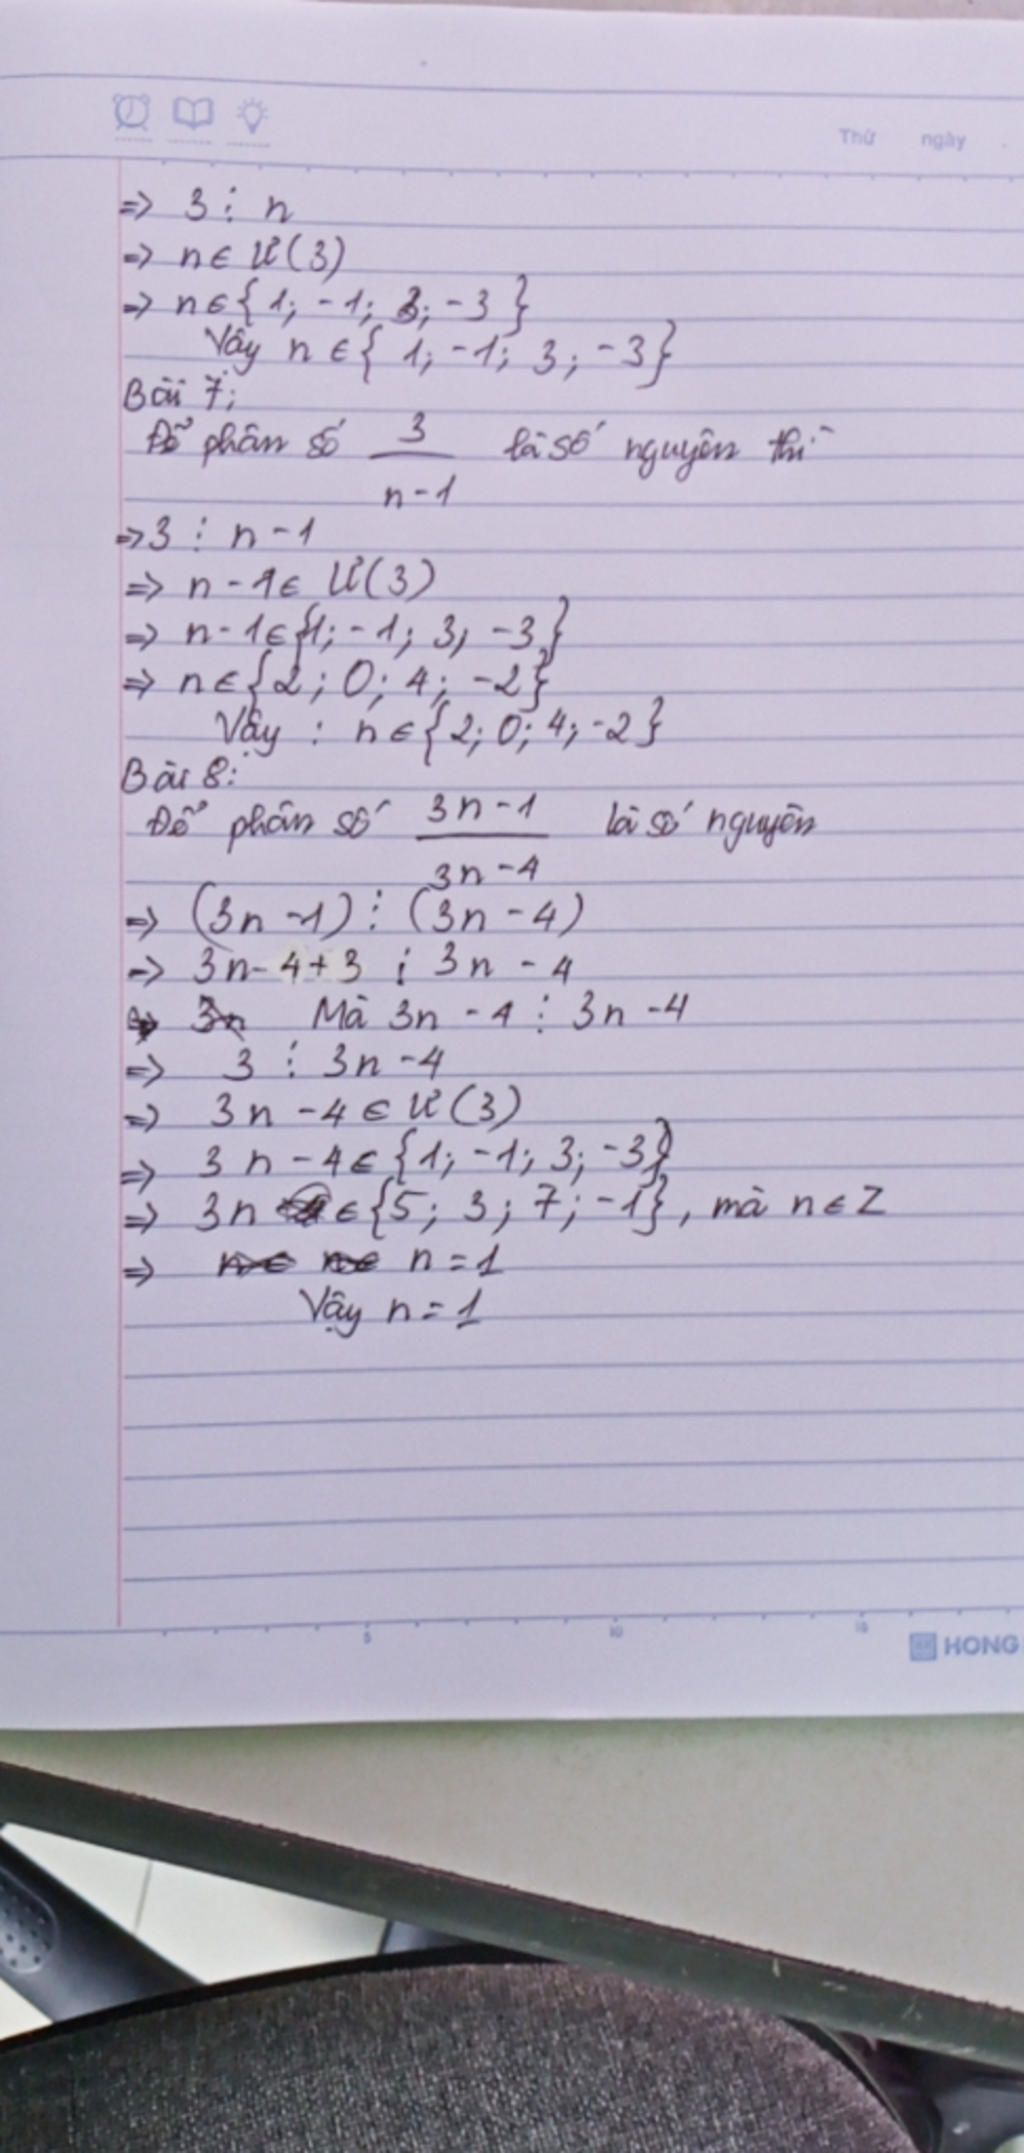 Thứ ngày
=> 3 ⋮ n
=> n ∈ Ư(3)
=> n ∈ { 1; -1; 3; -3 }
Vậy n ∈ { 1; -1; 3; -3}
Bài 7:
Để phân số 3/(n-1) là số nguyên thì
=> 3 ⋮ n-1
=> n-1 ∈ Ư(3)
=> n-1 ∈ {1; -1; 3; -3}
=> n ∈ {2; 0; 4; -2}
Vậy : n ∈ {2; 0; 4; -2}
Bài 8:
Để phân số (3n-1)/(3n-4) là số nguyên
=> (3n-1) ⋮ (3n-4)
=> 3n-4+3 ⋮ 3n-4
Mà 3n-4 ⋮ 3n-4
=> 3 ⋮ 3n-4
=> 3n-4 ∈ Ư(3)
=> 3n-4 ∈ {1; -1; 3; -3}
=> 3n ∈ {5; 3; 7; -1}, mà n ∈ Z
=> n = 1
Vậy n = 1
5 10 15
HONG